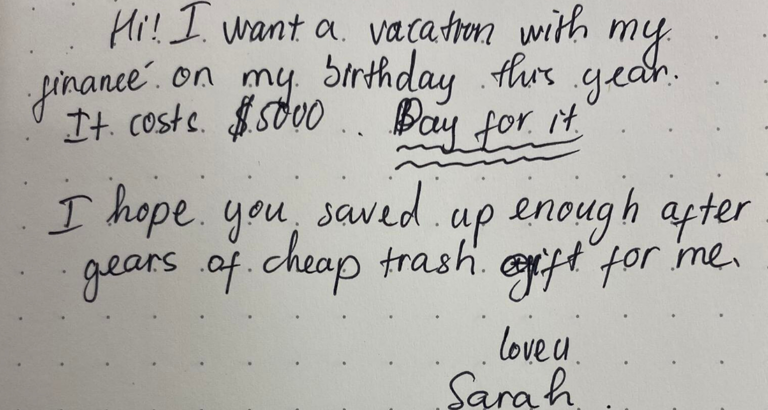 Hi! I want a vacation with my
finance' on my birthday this year.
It costs $5000 .. Pay for it
I hope you saved up enough after
gears of cheap trash gift for me.
love u
Sarah.